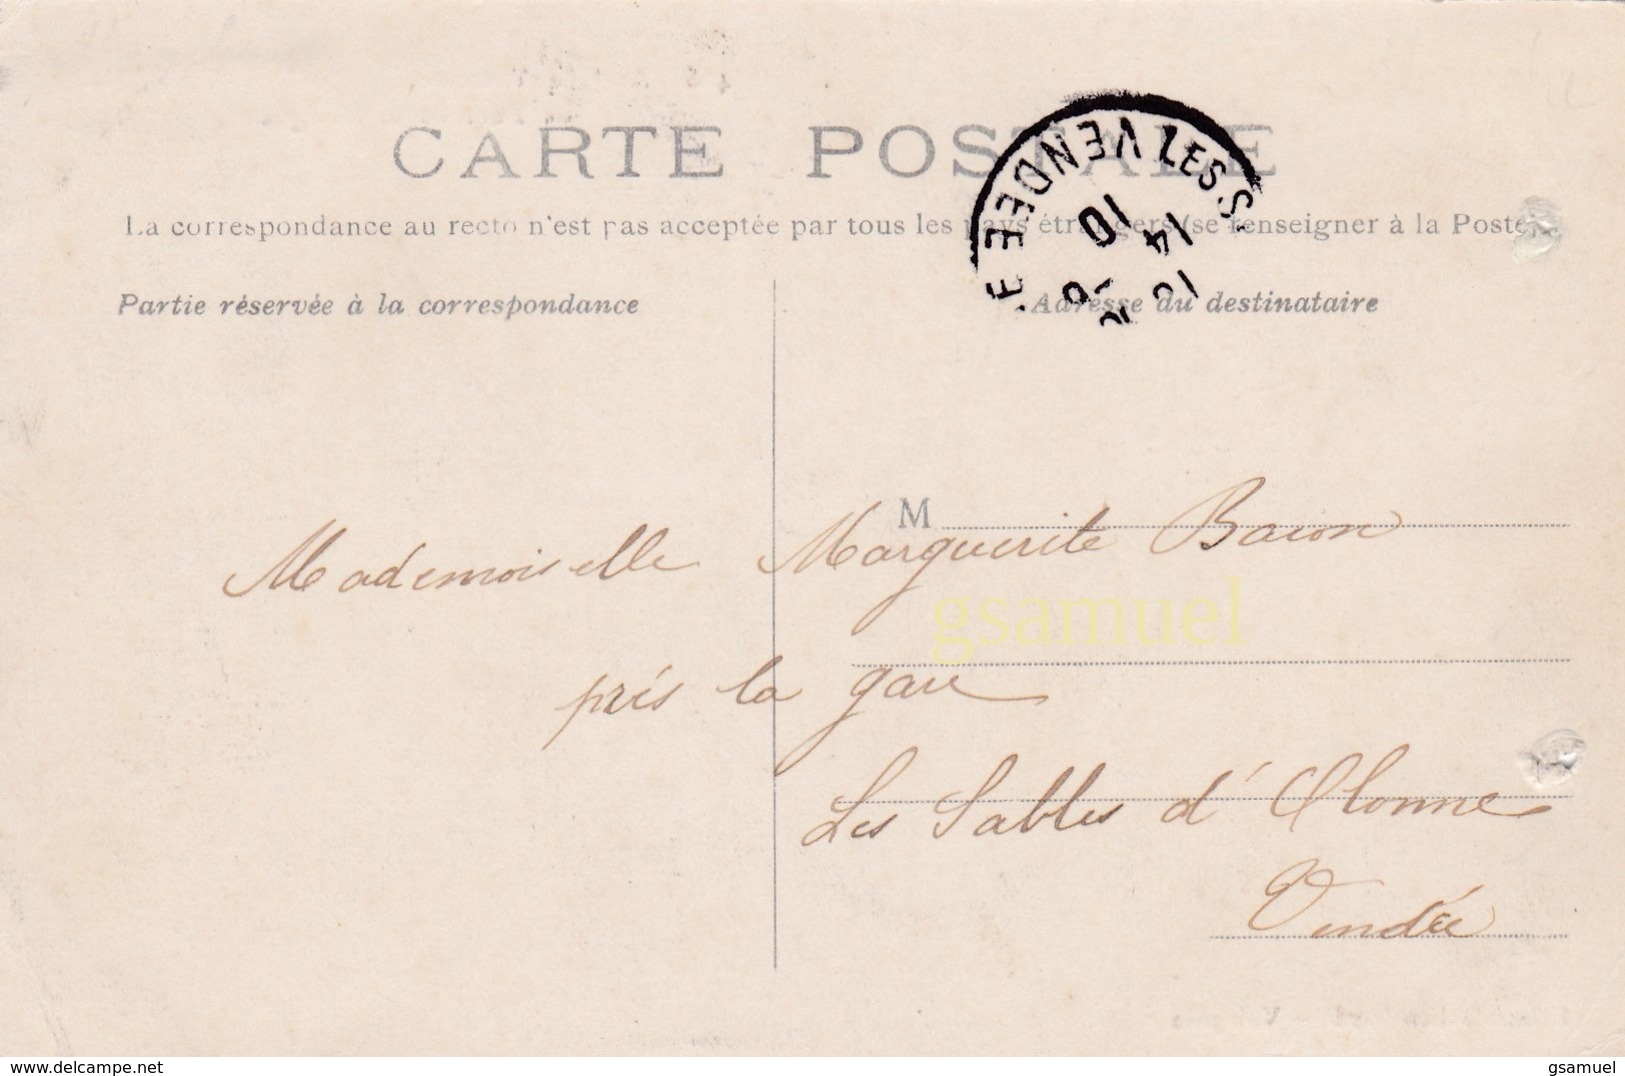 CARTE POSTALE
La correspondance au recto n'est pas acceptée par tous les pays étrangers (se renseigner à la Poste
Partie réservée à la correspondance
Adresse du destinataire
VENDEE LES S
10
14
M
Mademoiselle Marguerite Bacon
gsamuel
près la gare
Les Sables d'Olonne
Vendée
https://www.delcampe.net
gsamuel